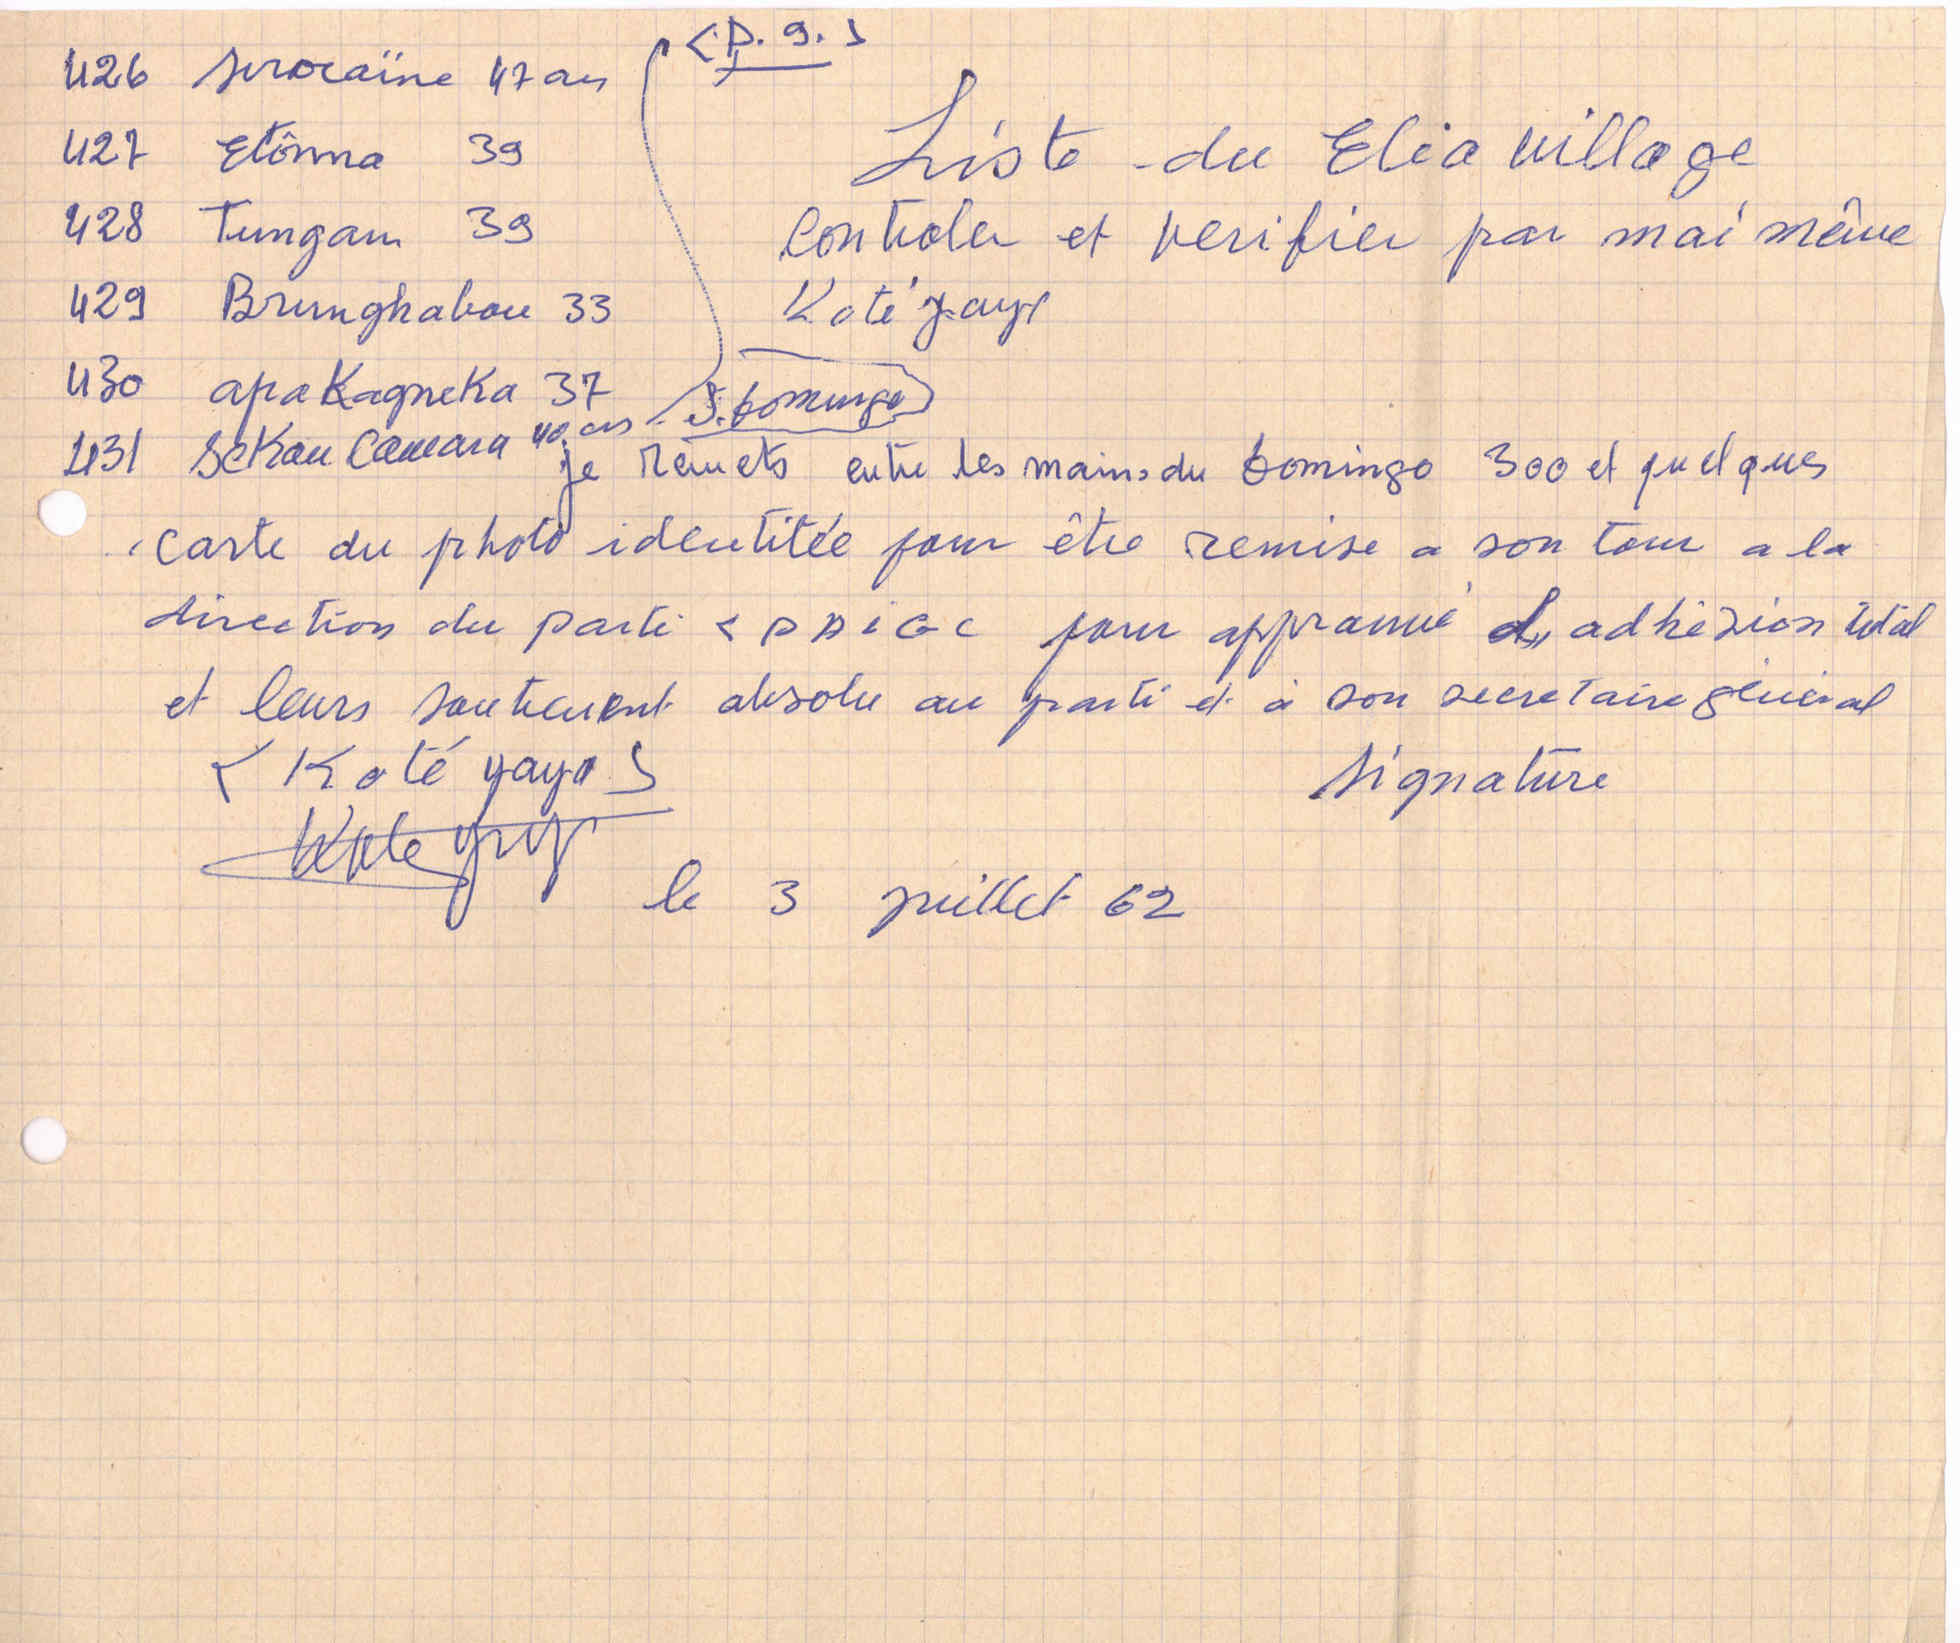 426 Sirocaïne 47 ans
427 Etônna 39
428 Tungam 39
429 Brunghabou 33
430 apa Kagneka 37
431 Sekou Camara 40 ans
< P. 9. >
Liste du Elia village
controler et verifier par moi même
Koté yaya
S. Domingo
je remets entre les mains du Domingo 300 et quelques
carte du photo identitée pour être remise a son tour a la
direction du parti < PAIGC pour approuvé d'' adhésion total
et leurs soutienent absolu au parti et à son secretaire général
< Koté yaya >
Signature
Kote yaya
le 3 juillet 62